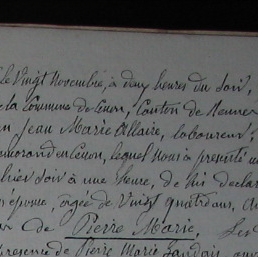 le vingt Novembre, à deux heures du soir,
de la Commune de Canton de
Jean Marie Allaire, laboureur,
en lequel nous a présenté
hier soir à une heure, de lui déclar
épouse, agée de vingt quatre ans,
de Pierre Marie, Les
présence de Pierre Marie